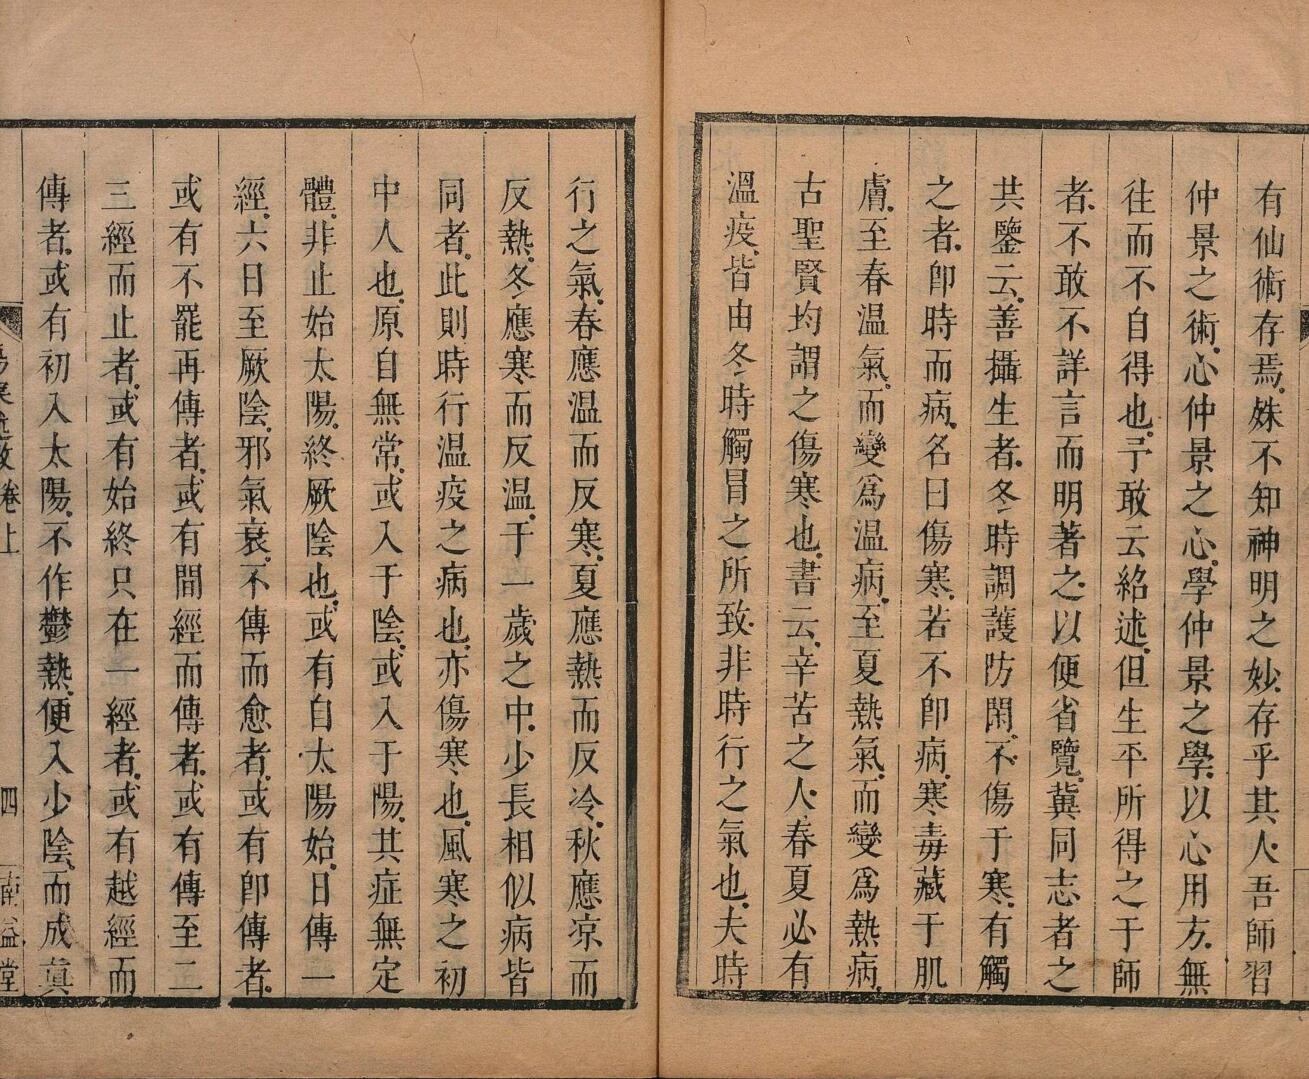 有仙術存焉姝不知神明之妙存乎其人吾師習
仲景之術心仲景之心學仲景之學以心用方無
往而不自得也予敢云紹述但生平所得之于師
者不敢不詳言而明著之以便省覽冀同志者之
共鑒云善攝生者冬時調護防閑不傷于寒有觸
之者卽時而病名曰傷寒若不卽病寒毒藏于肌
膚至春温氣而變爲温病至夏熱氣而變爲熱病
古聖賢均謂之傷寒也書云辛苦之人春夏必有
溫疫皆由冬時觸冒之所致非時行之氣也夫時
行之氣春應温而反寒夏應熱而反冷秋應凉而
反熱冬應寒而反温于一歲之中少長相似病皆
同者此則時行温疫之病也亦傷寒也風寒之初
中人也原自無常或入于陰或入于陽其症無定
體非止始太陽終厥陰也或有自太陽始日傳一
經六日至厥陰邪氣衰不傳而愈者或有卽傳者
或有不罷再傳者或有間經而傳者或有傳至二
三經而止者或有始終只在一經者或有越經而
傳者或有初入太陽不作鬱熱便入少陰而成眞
卷上
四